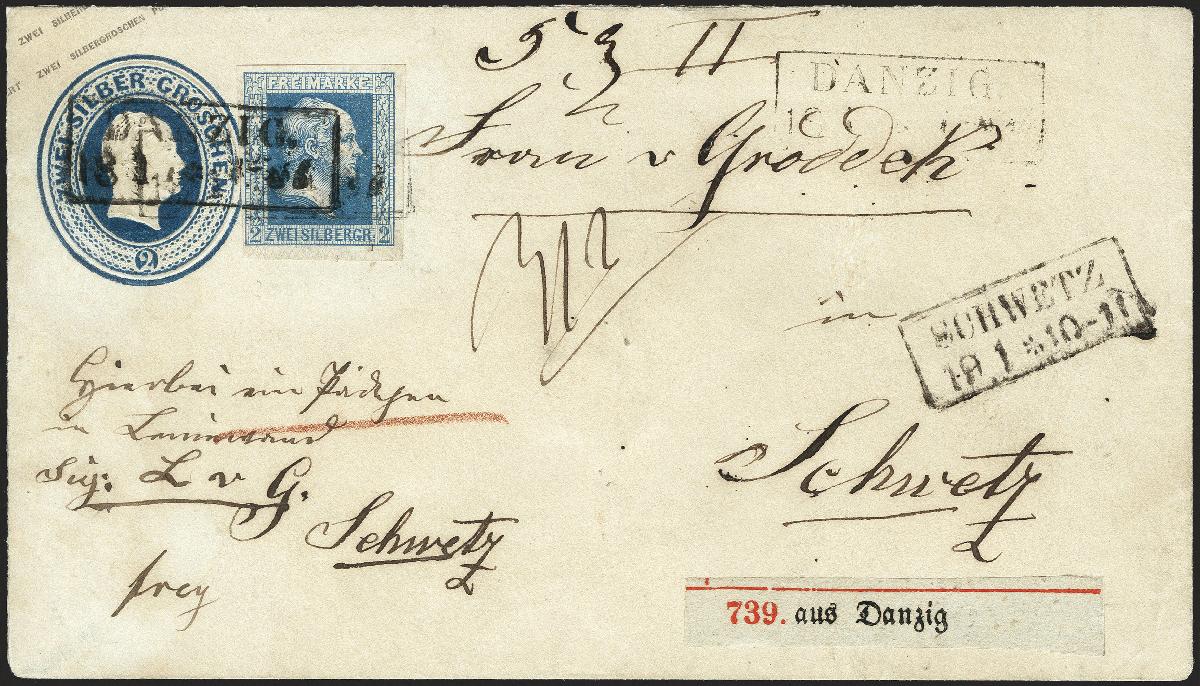 ZWEI SILBERGROSCHEN
ZWEI SILBERGROSCHEN
ZWEI SILBER-GROSCHEN
2
FREIMARKE
2 ZWEISILBERGR. 2
DANZIG.
18 1
DANZIG.
Frau v Groddeck
in
Schwetz
SCHWETZ
19 1 * 10-11
Hierbei ein Päckchen
in Leinwand
Sig: L v G.
Schwetz
frey
739. aus Danzig